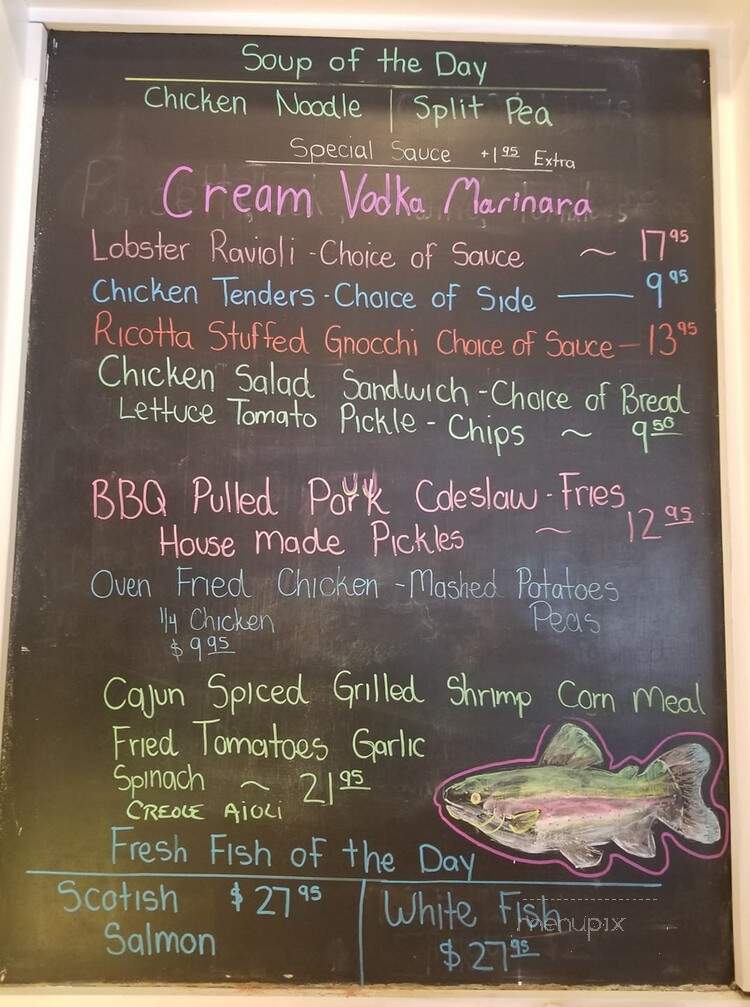 Soup of the Day
Chicken Noodle | Split Pea
Special Sauce +1 95 Extra
Cream Vodka Marinara
Lobster Ravioli - Choice of Sauce ~ 17 95
Chicken Tenders - Choice of Side — 9 95
Ricotta Stuffed Gnocchi Choice of Sauce - 13 95
Chicken Salad Sandwich - Choice of Bread
Lettuce Tomato Pickle - Chips ~ 9 50
BBQ Pulled Pork Coleslaw - Fries
House made Pickles ~ 12 95
Oven Fried Chicken - Mashed Potatoes
1/4 Chicken Peas
$ 9 95
Cajun Spiced Grilled Shrimp Corn Meal
Fried Tomatoes Garlic
Spinach ~ 21 95
CREOLE AIOLI
Fresh Fish of the Day
Scotish $ 27 95
Salmon
White Fish
$ 27 95
menupix